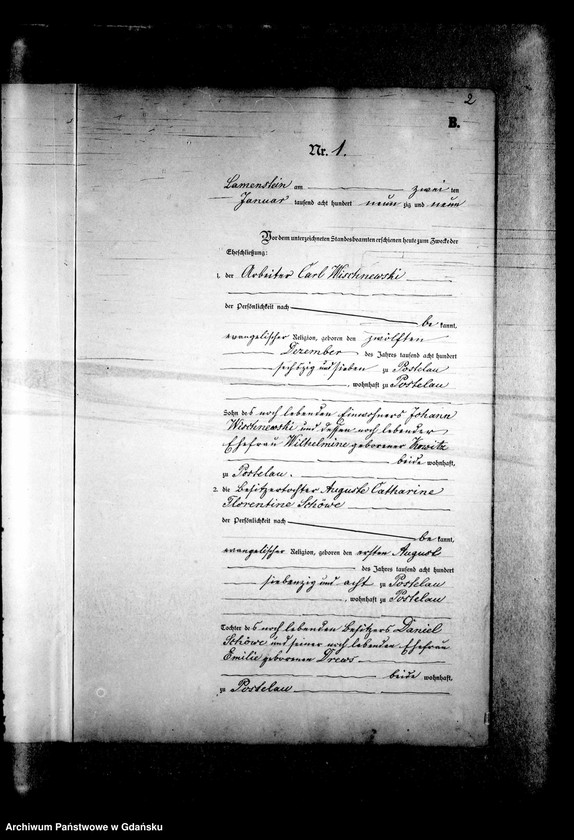 2
B.
Nr. 1.
Lamenstein am zwei ten
Januar tausend acht hundert neun zig und neun
Vor dem unterzeichneten Standesbeamten erschienen heute zum Zwecke der
Eheschließung:
1. der Arbeiter Carl Wischnewski
der Persönlichkeit nach
be kannt,
evangelischer Religion, geboren den zwölften
Dezember des Jahres tausend acht hundert
sechszig und sieben zu Postelau
, wohnhaft zu Postelau
Sohn des noch lebenden Einwohners Johann
Wischnewski und dessen noch lebender
Ehefrau Wilhelmine geborener
beide wohnhaft,
zu Postelau.
2. die Besitzertochter Auguste Catharine
Florentine Schöwe
der Persönlichkeit nach
be kannt,
evangelischer Religion, geboren den ersten August
des Jahres tausend acht hundert
siebenzig und acht zu Postelau
, wohnhaft zu Postelau
Tochter des noch lebenden Besitzers Daniel
Schöwe und seiner noch lebenden Ehefrau
Emilie geborenen Drews
beide wohnhaft,
zu Postelau
Archiwum Państwowe w Gdańsku